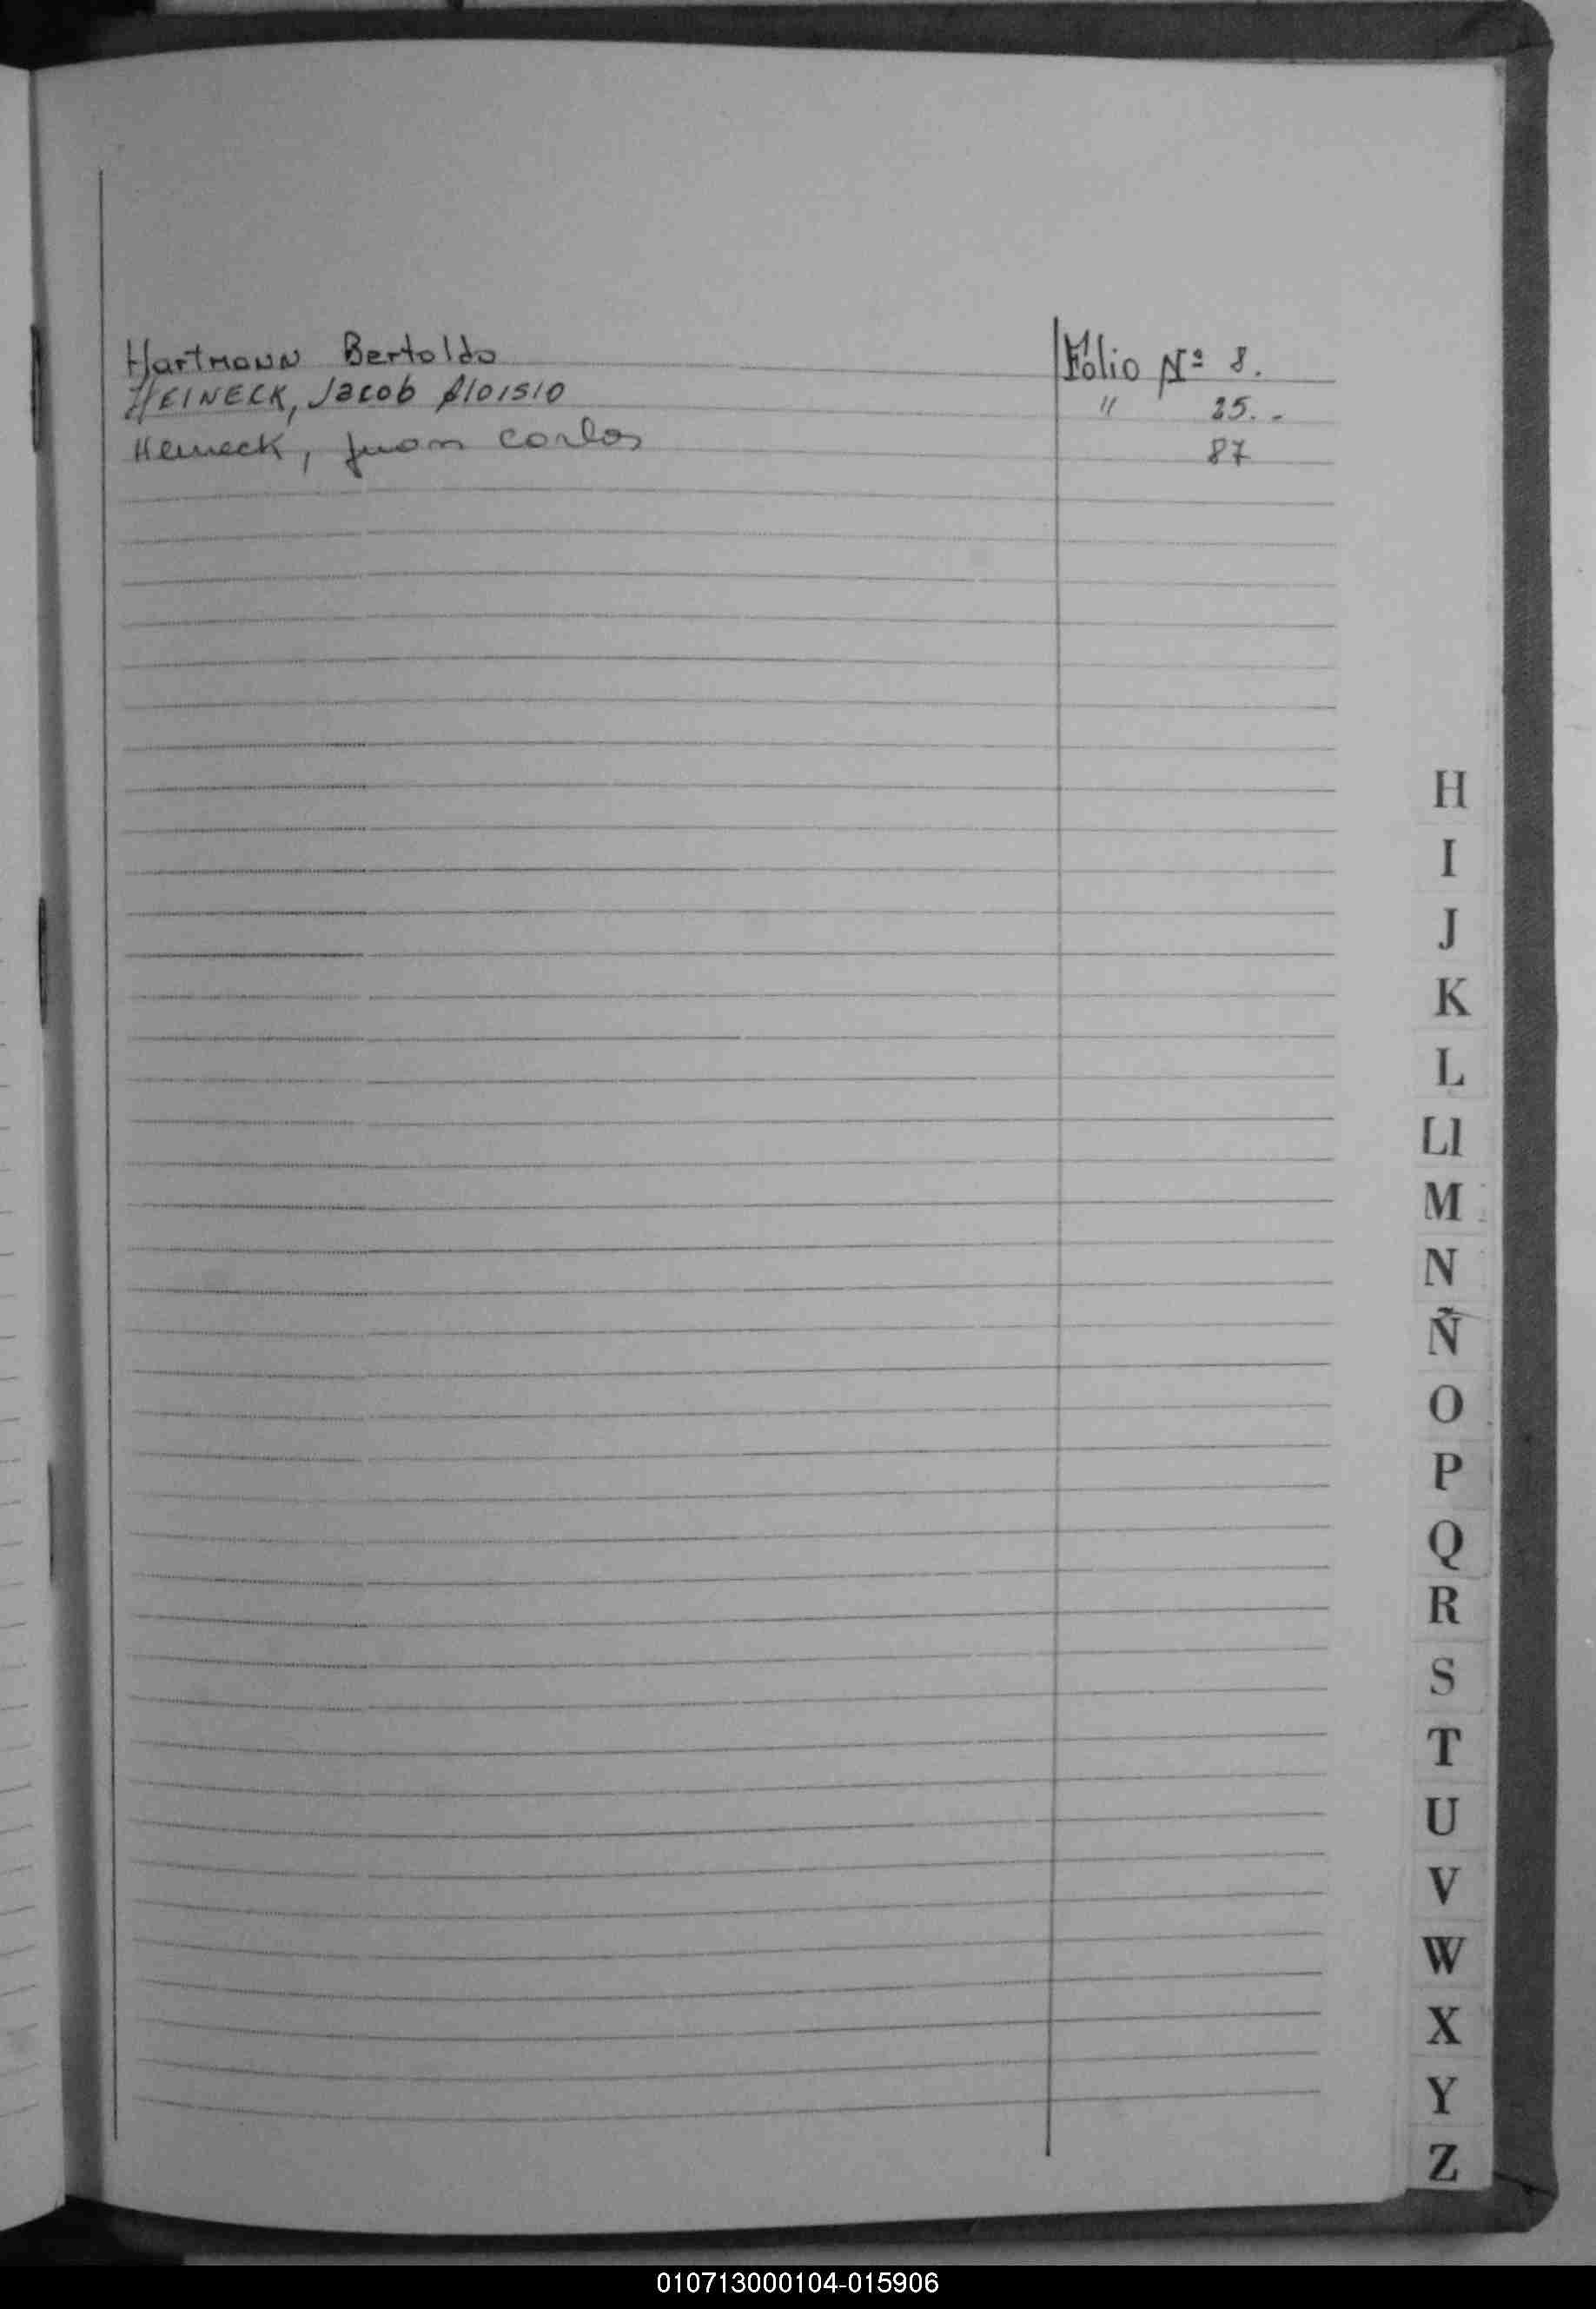 Hartmann Bertoldo Fólio Nº 8.
HEINECK, Jacob Aloisio " 25.-
Heineck, Juan Carlos 87
H
I
J
K
L
Ll
M
N
Ñ
O
P
Q
R
S
T
U
V
W
X
Y
Z
010713000104-015906